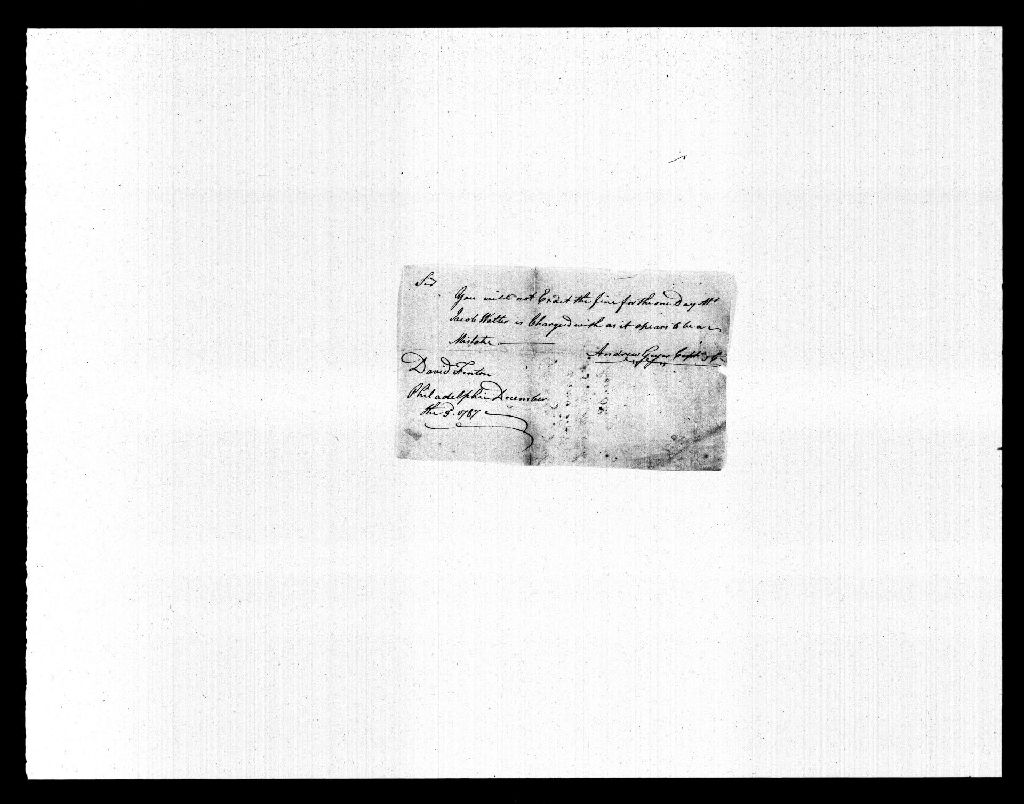 Sir
You will not Exact the fine for the one Day Mr
Jacob Walter is Charged with as it apears to be a
Mistake
Andrew Geyer Capt
David Fenton
Philadelphia December
the 3. 1787